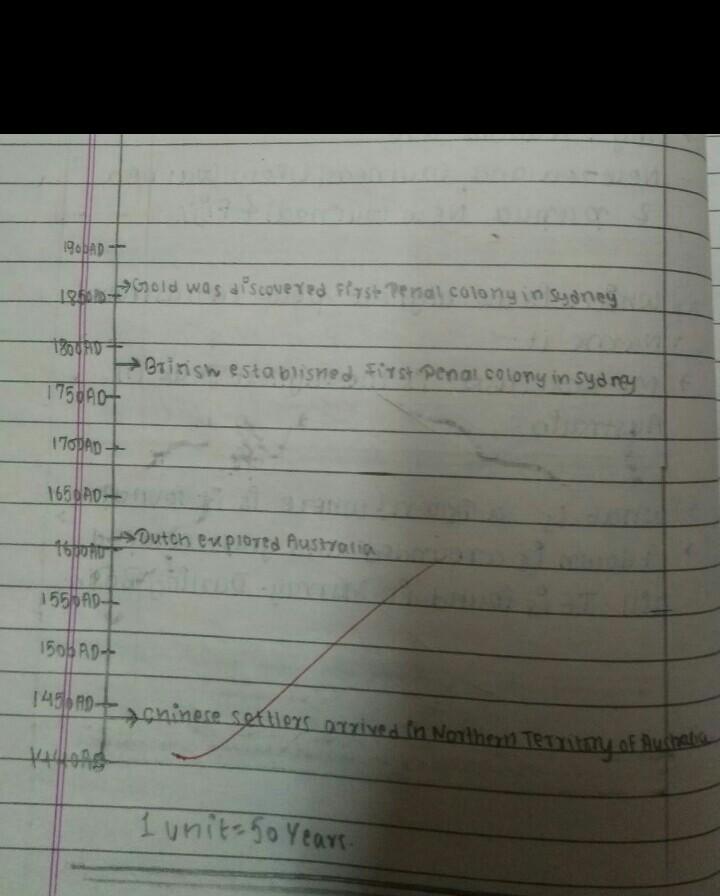 1900AD
→Gold was discovered First Penal colony in Sydney
1850AD
1800AD
→Brirish established First Penal colony in Sydney
1750AD
1700AD
1650AD
→Dutch explored Australia
1600AD
1550AD
1500AD
1450AD
→Chinese settlers arrived in Northern Territory of Australia
1 unit=50 Years.